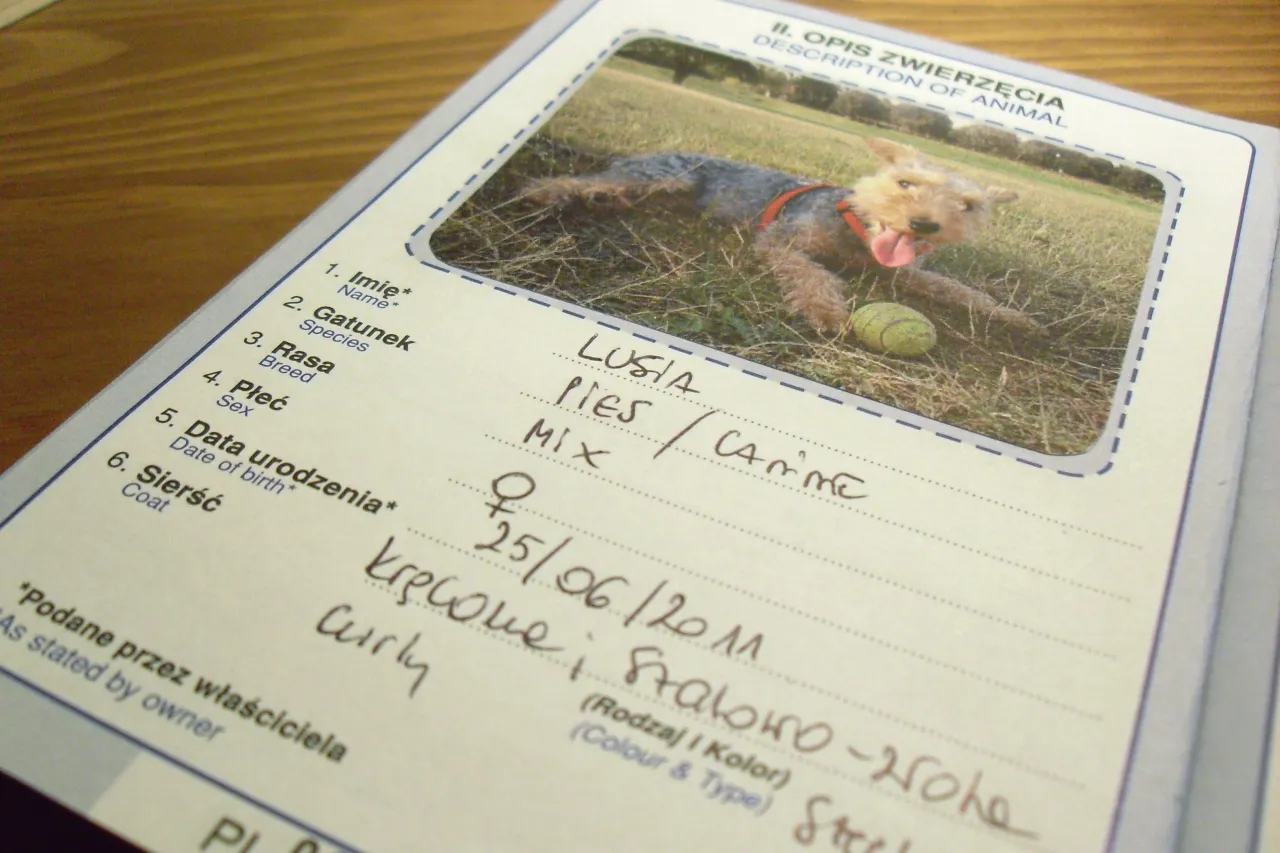 II. OPIS ZWIERZĘCIA
DESCRIPTION OF ANIMAL
1. Imię*
Name*
LUSIA
2. Gatunek
Species
PIES / CANINE
3. Rasa
Breed
MIX
4. Płeć
Sex
♀
5. Data urodzenia*
Date of birth*
25/06/2011
6. Sierść
Coat
kręcone;
curly
(Rodzaj i Kolor)
(Colour & Type)
*Podane przez właściciela
*As stated by owner
PL